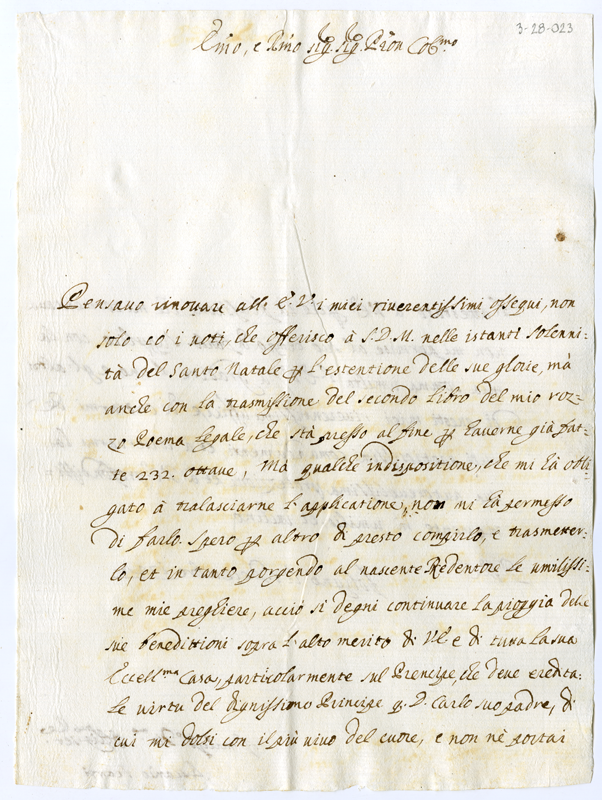 3-28-023
Emo, e Rmo sig. sig. Pron Colmo
Pensavo rinovare all'E.V. i miei riverentissimi ossequi, non
solo có i voti, che offerisco à S.D.M. nelle istanti solenni-
tà del Santo Natale per l'estentione delle sue glorie, mà
anche con la trasmissione del secondo libro del mio roz-
zo Poema legale, che stà presso al fine per haverne già fat-
te 232. ottave, Mà qualche indispositione, che mi hà obli-
gato à tralasciarne l'applicatione, non mi hà permesso
di farlo. Spero per altro di presto compirlo, e trasmetter-
lo, et in tanto porgendo al nascente Redentore le umilissi-
me mie preghiere, acciò si degni continuare la pioggia delle
sue benedittioni sopra l'alto merito di V.E. e di tutta la sua
Eccellma Casa, particolarmente sul Prencipe, che deve eredita-
re le virtù del dignissimo Principe q. D. Carlo suo padre, di
cui mi dolsi con il più vivo del cuore, e non nè portai